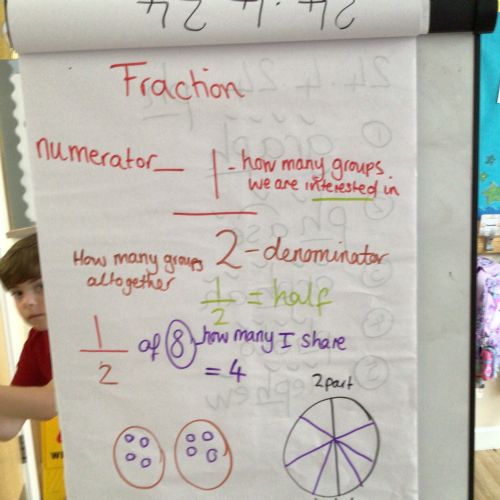 24.4.24
Fraction
numerator
1 - how many groups
we are interested in
2 - denominator
How many groups
altogether
1/2 = half
1/2 of 8 how many I share
= 4
2 part